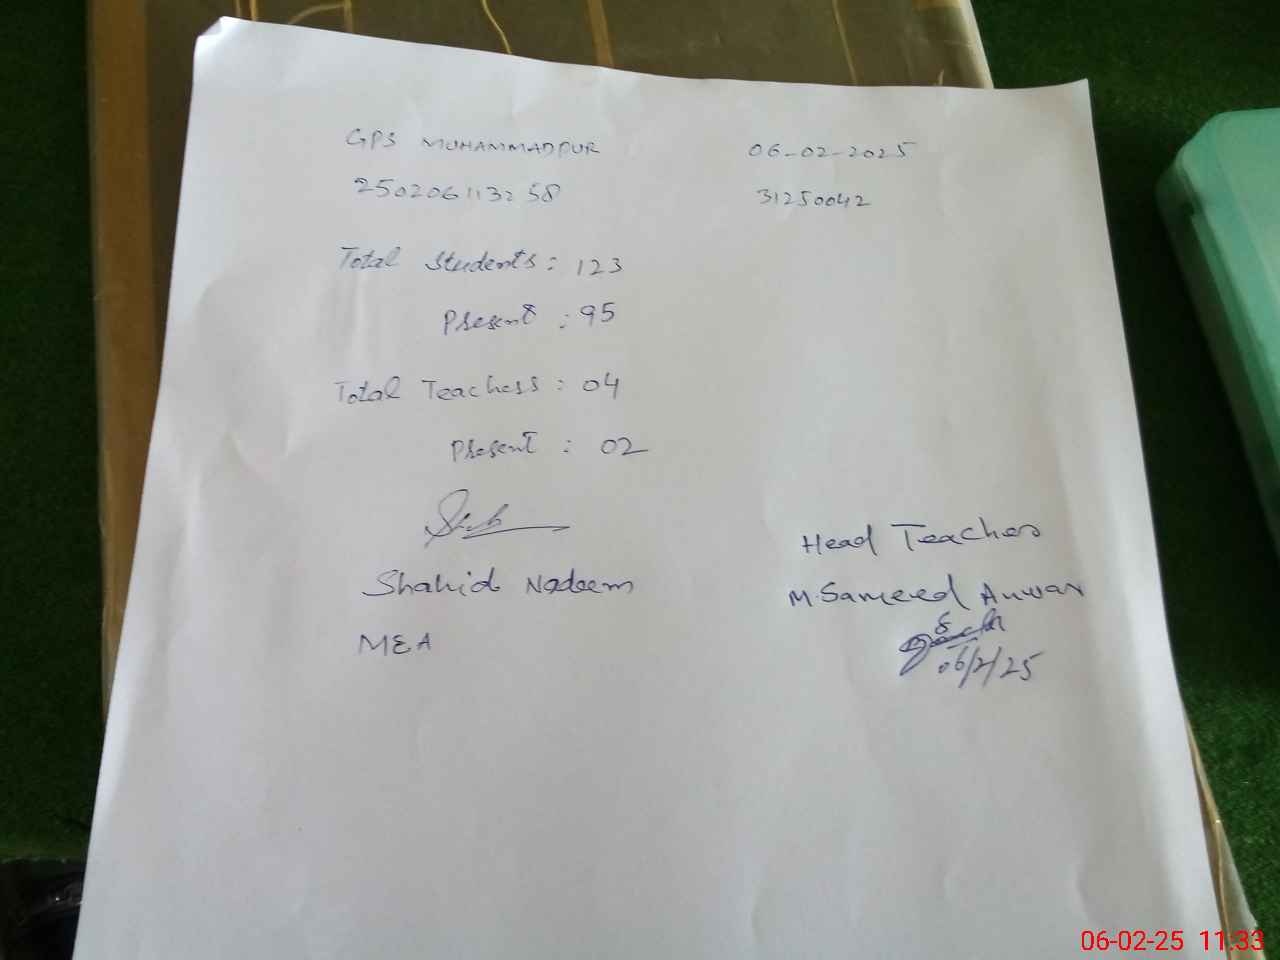 GPS MUHAMMADPUR 06-02-2025
250206113258 31250042
Total Students: 123
Present : 95
Total Teachers : 04
Present : 02
Shahid Nadeem
MEA
Head Teacher
M. Sameed Anwar
06/2/25
06-02-25 11:33